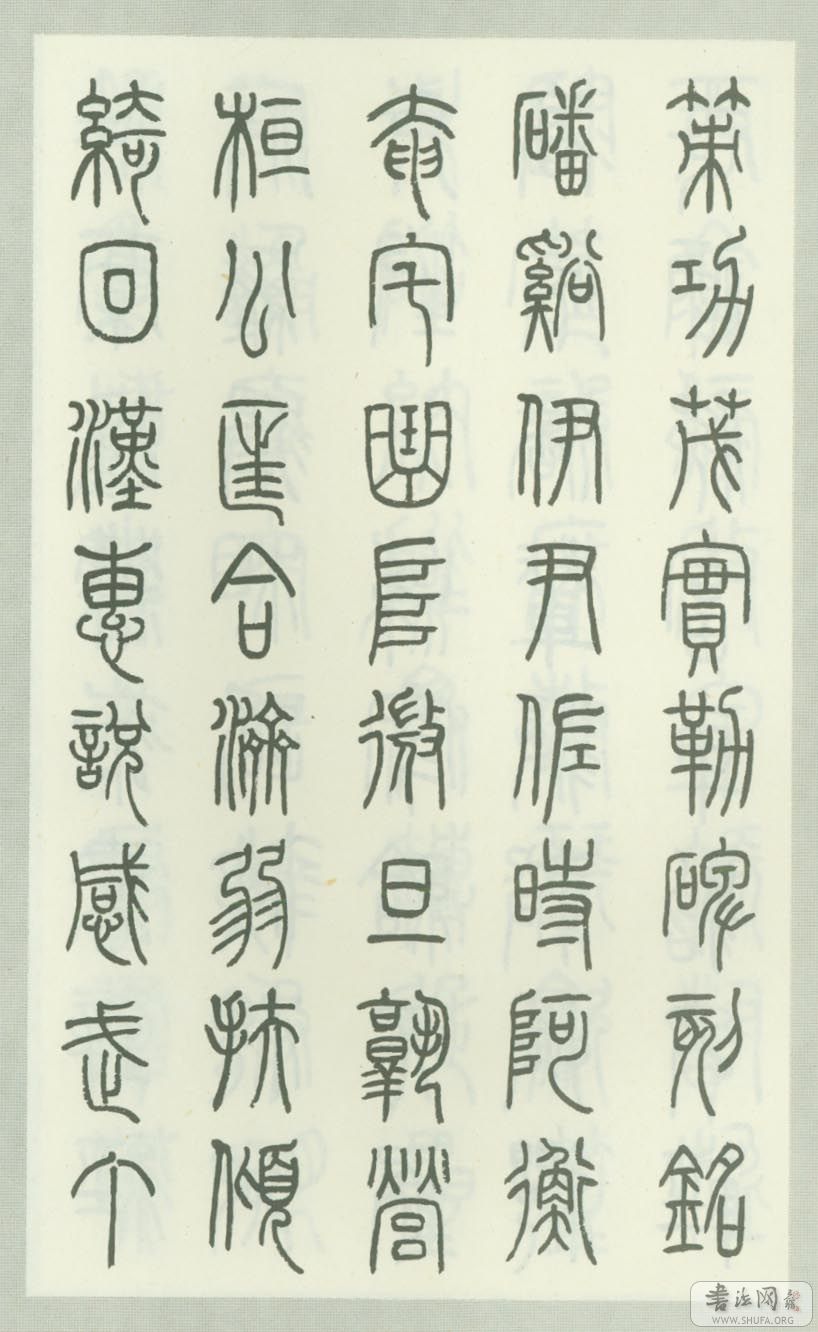 策功茂實勒碑刻銘
磻谿伊尹佐時阿衡
奄宅曲阜微旦孰營
桓公匡合濟弱扶傾
綺回漢惠說感武丁
書法网
WWW.SHUFA.ORG